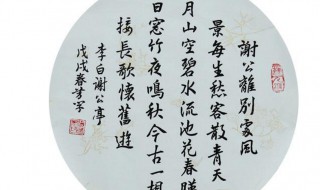 謝公離別處風
景每生愁客散青天
月山空碧水流池花春暎
日窓竹夜鳴秋今古一相
接長歌懷舊遊
李白謝公亭
戊戌春